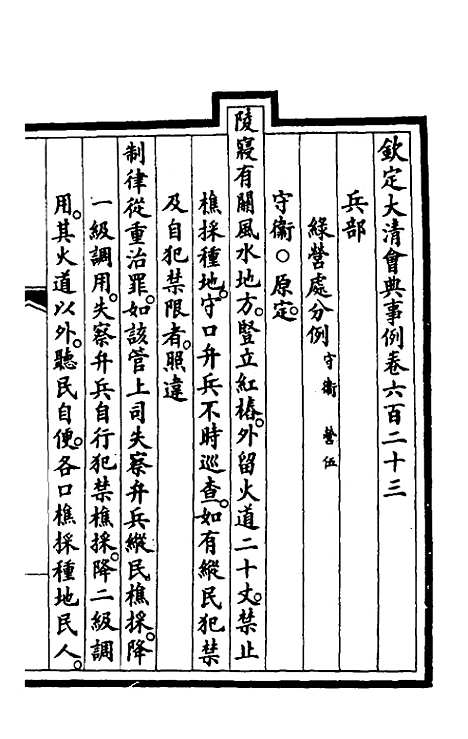 欽定大清會典事例卷六百二十三
兵部
綠營處分例 守衞 營伍
守衞○原定。
陵寢有關風水地方。豎立紅樁。外留火道二十丈。禁止
樵採種地。守口弁兵不時巡查。如有縱民犯禁
及自犯禁限者。照違
制律從重治罪。如該管上司失察弁兵縱民樵採。降
一級調用。失察弁兵自行犯禁樵採。降二級調
用。其火道以外。聽民自便。各口樵採種地民人。